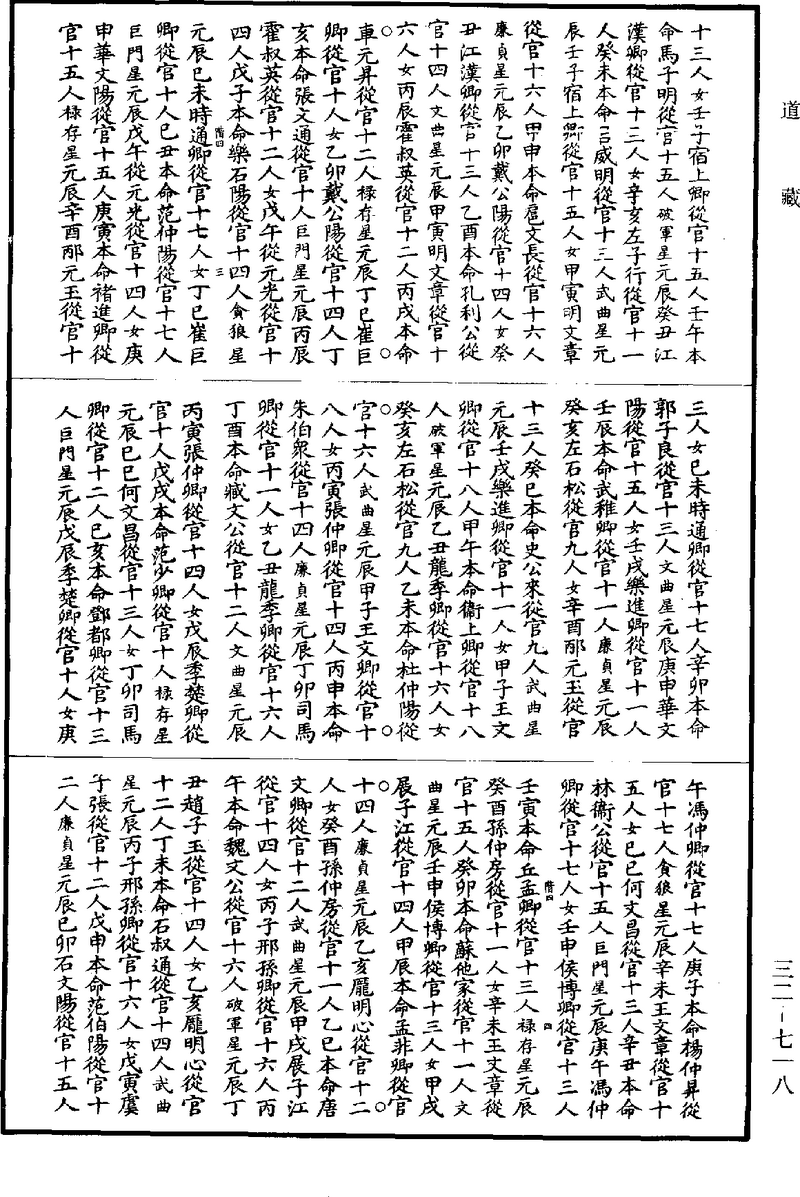 道藏
十三人女壬子宿上卿從官十五人壬午本
命馬子明從官十五人破軍星元辰癸丑江
漢卿從官十三人女辛亥左子行從官十一
人癸未本命呂威明從官十三人武曲星元
辰壬子宿上卿從官十五人女甲寅明文章
從官十六人甲申本命扈文長從官十六人
廉貞星元辰乙卯戴公陽從官十四人女癸
丑江漢卿從官十三人乙酉本命孔利公從
官十四人文曲星元辰甲寅明文章從官十
六人女丙辰霍叔英從官十二人丙戌本命
車元昇從官十二人祿存星元辰丁巳崔巨
卿從官十人女乙卯戴公陽從官十四人丁
亥本命張文通從官十人巨門星元辰丙辰
霍叔英從官十二人女戊午從元光從官十
四人戊子本命樂石陽從官十四人貪狼星
階四 三
元辰巳未時通卿從官十七人女丁巳崔巨
卿從官十人巳丑本命范仲陽從官十七人
巨門星元辰戊午從元光從官十四人女庚
申華文陽從官十五人庚寅本命褚進卿從
官十五人祿存星元辰辛酉邴元玉從官十
三人女巳未時通卿從官十七人辛卯本命
郭子良從官十三人文曲星元辰庚申華文
陽從官十五人女壬戌樂進卿從官十一人
壬辰本命武稚卿從官十一人廉貞星元辰
癸亥左石松從官九人女辛酉邴元玉從官
十三人癸巳本命史公來從官九人武曲星
元辰壬戌樂進卿從官十一人女甲子王文
卿從官十八人甲午本命衞上卿從官十八
人破軍星元辰乙丑龍季卿從官十六人女
癸亥左石松從官九人乙未本命杜仲陽從
官十六人武曲星元辰甲子王文卿從官十
八人女丙寅張仲卿從官十四人丙申本命
朱伯衆從官十四人廉貞星元辰丁卯司馬
卿從官十一人女乙丑龍季卿從官十六人
丁酉本命臧文公從官十二人文曲星元辰
丙寅張仲卿從官十四人女戊辰季楚卿從
官十人戊戌本命范少卿從官十人祿存星
元辰巳巳何文昌從官十三人女丁卯司馬
卿從官十二人巳亥本命鄧都卿從官十三
人巨門星元辰戊辰季楚卿從官十人女庚
午馮仲卿從官十七人庚子本命楊仲昇從
官十七人貪狼星元辰辛未王文章從官十
五人女巳巳何文昌從官十三人辛丑本命
林衞公從官十五人巨門星元辰庚午馮仲
卿從官十七人女壬申侯博卿從官十三人
階四 四
壬寅本命丘孟卿從官十三人祿存星元辰
癸酉孫仲房從官十一人女辛未王文章從
官十五人癸卯本命蘇他家從官十一人文
曲星元辰壬申侯博卿從官十三人女甲戌
展子江從官十四人甲辰本命孟非卿從官
十四人廉貞星元辰乙亥龐明心從官十二
人女癸酉孫仲房從官十一人乙巳本命唐
文卿從官十二人武曲星元辰甲戌展子江
從官十四人女丙子邢孫卿從官十六人丙
午本命魏文公從官十六人破軍星元辰丁
丑趙子玉從官十四人女乙亥龐明心從官
十二人丁未本命石叔通從官十四人武曲
星元辰丙子邢孫卿從官十六人女戊寅虞
子張從官十二人戊申本命范伯陽從官十
二人廉貞星元辰巳卯石文陽從官十五人
三二-七一八